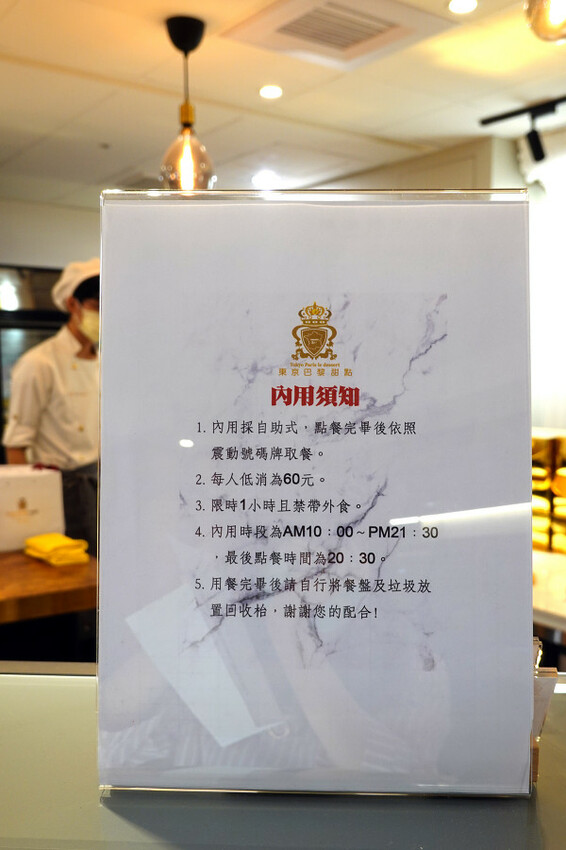 Tokyo Paris le dessert
東京巴黎甜點
內用須知
1. 內用採自助式，點餐完畢後依照
震動號碼牌取餐。
2. 每人低消為60元。
3. 限時1小時且禁帶外食。
4. 內用時段為AM10：00～PM21：30
，最後點餐時間為20：30。
5. 用餐完畢後請自行將餐盤及垃圾放
置回收枱，謝謝您的配合!